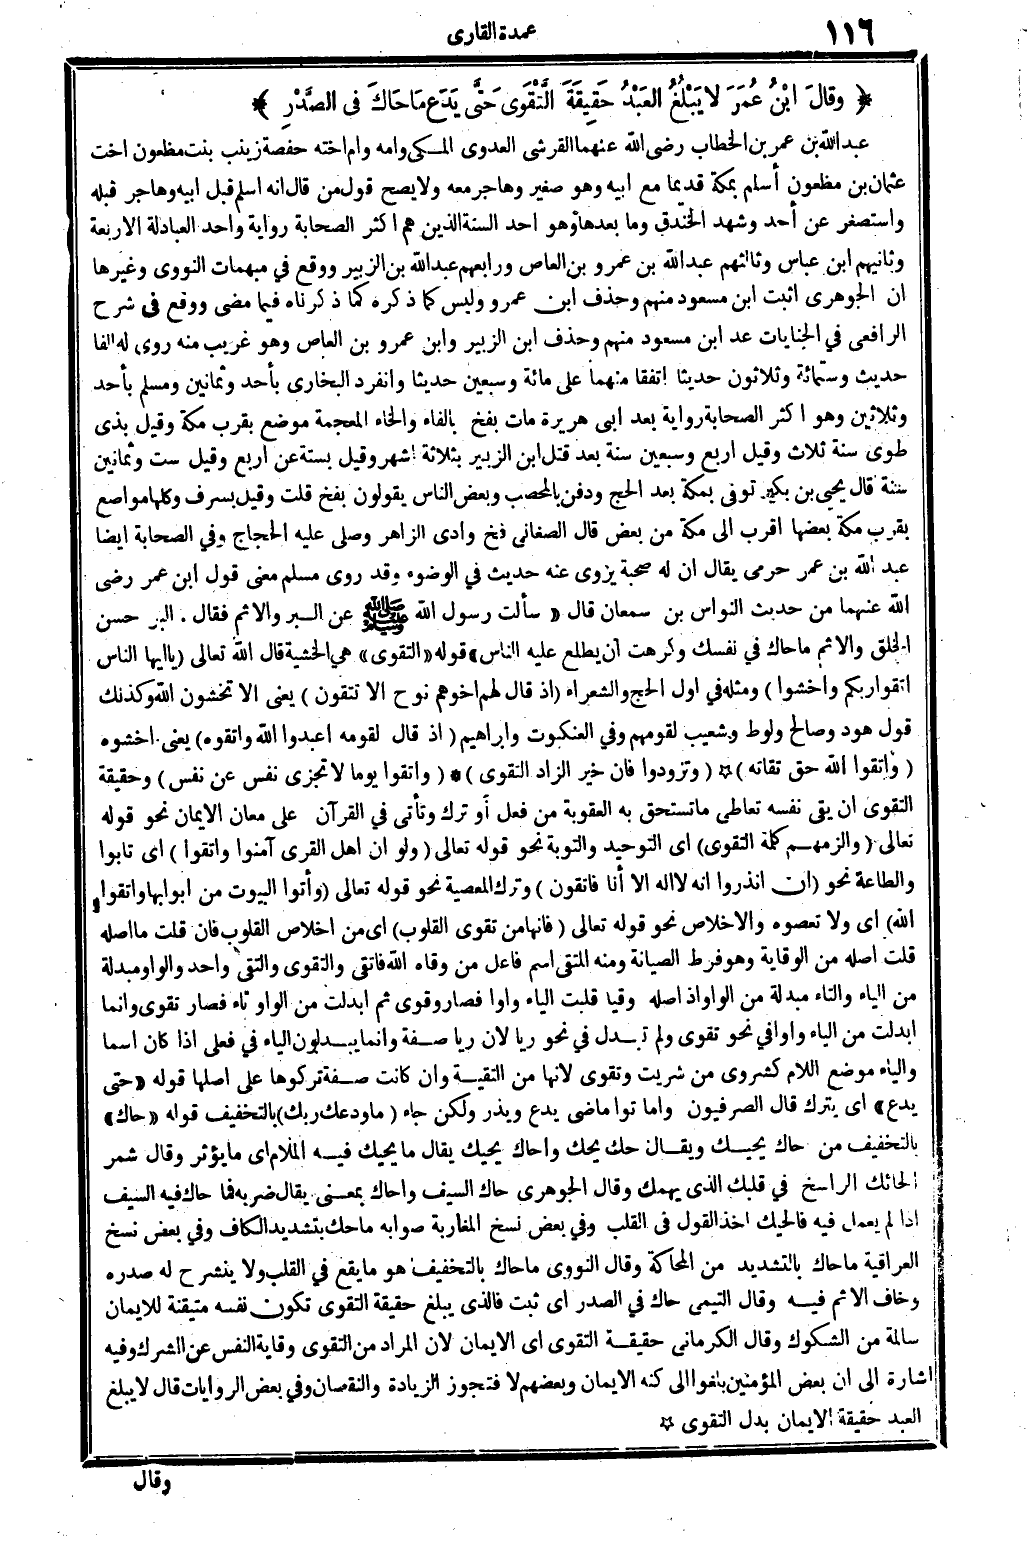 ١١٦
عمدة القارى
﴿ وقالَ ابْنُ عُمَرَ لا يَبْلُغُ العَبْدُ حَقِيقَةَ التَّقْوَى حَتَّى يَدَعَ ماحَاكَ فى الصَّدْرِ ﴾
عبدالله بن عمر بن الخطاب رضى الله عنهما القرشى العدوى المكى وامه وام اخته حفصة زينب بنت مظعون اخت
عثمان بن مظعون أسلم بمكة قديما مع ابيه وهو صغير وهاجر معه ولا يصح قول من قال انه اسلم قبل ابيه وهاجر قبله
واستصغر عن أحد وشهد الخندق وما بعدها وهو احد الستة الذين هم اكثر الصحابة رواية واحد العبادلة الاربعة
وثانيهم ابن عباس وثالثهم عبدالله بن عمرو بن العاص ورابعهم عبدالله بن الزبير ووقع في مبهمات النووى وغيرها
ان الجوهرى اثبت ابن مسعود منهم وحذف ابن عمرو وليس كما ذكره كما ذكرناه فيما مضى ووقع فى شرح
الرافعى في الجنايات عد ابن مسعود منهم وحذف ابن الزبير وابن عمرو بن العاص وهو غريب منه روى له الفا
حديث وستمائة وثلاثون حديثا اتفقا منهما على مائة وسبعين حديثا وانفرد البخارى بأحد وثمانين ومسلم بأحد
وثلاثين وهو اكثر الصحابة رواية بعد ابى هريرة مات بفخ بالفاء والخاء المعجمة موضع بقرب مكة وقيل بذى
طوى سنة ثلاث وقيل اربع وسبعين سنة بعد قتل ابن الزبير بثلاثة اشهر وقيل بستة عن اربع وقيل ست وثمانين
سنة قال يحيى بن بكير توفى بمكة بعد الحج ودفن بالمحصب وبعض الناس يقولون بفخ قلت وقيل بسرف وكلها مواضع
بقرب مكة بعضها اقرب الى مكة من بعض قال الصغانى فخ وادى الزاهر وصلى عليه الحجاج وفي الصحابة ايضا
عبد الله بن عمر حرمى يقال ان له صحبة يروى عنه حديث في الوضوء وقد روى مسلم معنى قول ابن عمر رضى
الله عنهما من حديث النواس بن سمعان قال « سألت رسول الله ﷺ عن البر والاثم فقال . البر حسن
الخلق والاثم ماحاك في نفسك وكرهت ان يطلع عليه الناس » قوله «التقوى» هى الخشية قال الله تعالى (ياايها الناس
اتقوا ربكم واخشوا ) ومثله في اول الحج والشعراء (اذ قال لهم اخوهم نوح الا تتقون ) يعنى الا تخشون الله وكذلك
قول هود وصالح ولوط وشعيب لقومهم وفي العنكبوت وابراهيم ( اذ قال لقومه اعبدوا الله واتقوه) يعنى اخشوه
( واتقوا الله حق تقاته )☆ ( وتزودوا فان خير الزاد التقوى )* ( واتقوا يوما لا تجزى نفس عن نفس ) وحقيقة
التقوى ان يقى نفسه تعاطى ماتستحق به العقوبة من فعل أو ترك وتأتى في القرآن على معان الايمان نحو قوله
تعالى ( والزمهم كلمة التقوى) اى التوحيد والتوبة نحو قوله تعالى ( ولو ان اهل القرى آمنوا واتقوا ) اى تابوا
والطاعة نحو (ان انذروا انه لااله الا أنا فاتقون ) وترك المعصية نحو قوله تعالى (وأتوا البيوت من ابوابها واتقوا
الله) اى ولا تعصوه والاخلاص نحو قوله تعالى ( فانها من تقوى القلوب) اى من اخلاص القلوب فان قلت مااصله
قلت اصله من الوقاية وهو فرط الصيانة ومنه المتقى اسم فاعل من وقاه الله فاتقى والتقوى والتقى واحد والواو مبدلة
من الياء والتاء مبدلة من الواو اذ اصله وقيا قلبت الياء واوا فصار وقوى ثم ابدلت من الواو تاء فصار تقوى وانما
ابدلت من الياء واوا في نحو تقوى ولم تبدل في نحو ريا لان ريا صفة وانما يبدلون الياء في فعلى اذا كان اسما
والياء موضع اللام كشروى من شريت وتقوى لانها من التقية وان كانت صفة تركوها على اصلها قوله «حتى
يدع» اى يترك قال الصرفيون واماتوا ماضى يدع ويذر ولكن جاء ( ماودعك ربك) بالتخفيف قوله «حاك»
بالتخفيف من حاك يحيك ويقال حك يحك واحاك يحيك يقال مايحيك فيه الملام اى مايؤثر وقال شمر
الحائك الراسخ في قلبك الذى يهمك وقال الجوهرى حاك السيف واحاك بمعنى يقال ضربه فما حاك فيه السيف
اذا لم يعمل فيه فالحيك اخذ القول فى القلب وفي بعض نسخ المغاربة صوابه ماحك بتشديد الكاف وفي بعض نسخ
العراقية ماحاك بالتشديد من المحاكة وقال النووى ماحاك بالتخفيف هو مايقع في القلب ولا ينشرح له صدره
وخاف الاثم فيه وقال التيمى حاك في الصدر اى ثبت فالذى يبلغ حقيقة التقوى تكون نفسه متيقنة للايمان
سالمة من الشكوك وقال الكرمانى حقيقة التقوى اى الايمان لان المراد من التقوى وقاية النفس عن الشرك وفيه
اشارة الى ان بعض المؤمنين بلغوا الى كنه الايمان وبعضهم لا فتجوز الزيادة والنقصان وفي بعض الروايات قال لا يبلغ
العبد حقيقة الايمان بدل التقوى ☆
وقال